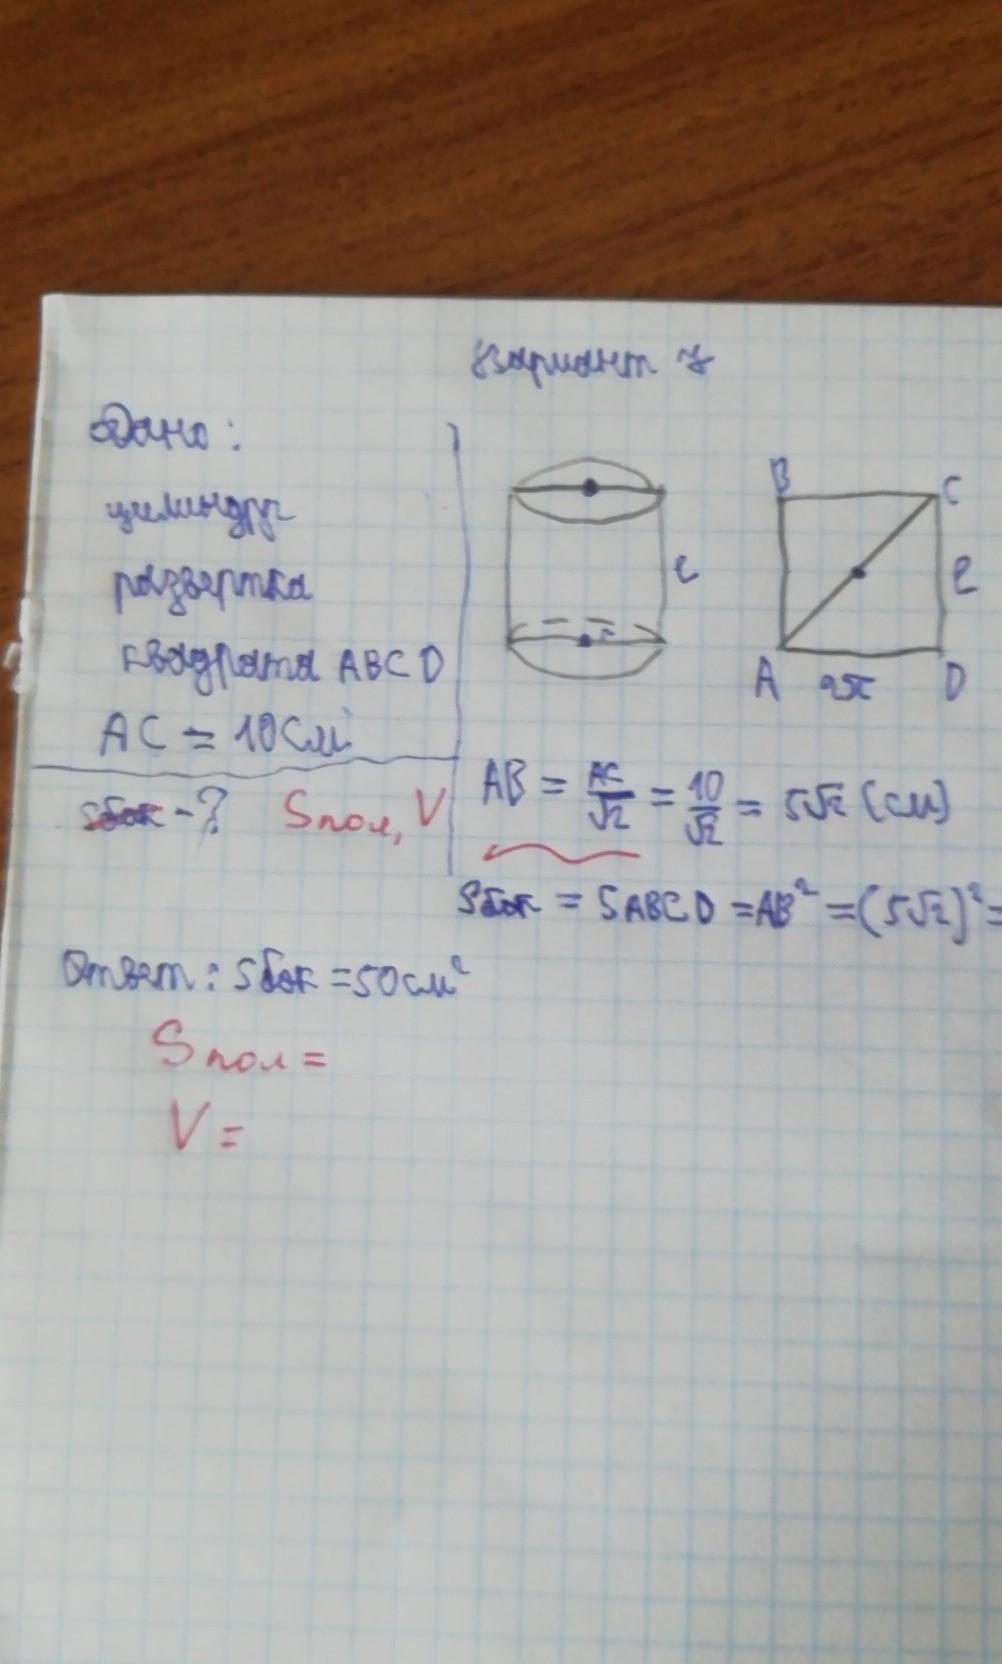 Вариант 7
Дано:
цилиндр
развертка
квадрата ABCD
AC = 10 см
Sбок - ? Sпол, V
r
l
B C
l
A 2π D
AB = AC/√2 = 10/√2 = 5√2 (см)
Sбок = SABCD = AB² = (5√2)² =
Ответ: Sбок = 50 см²
Sпол =
V =